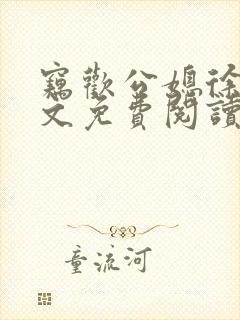 竊歡公媳徐
文免費閱讀
童流河